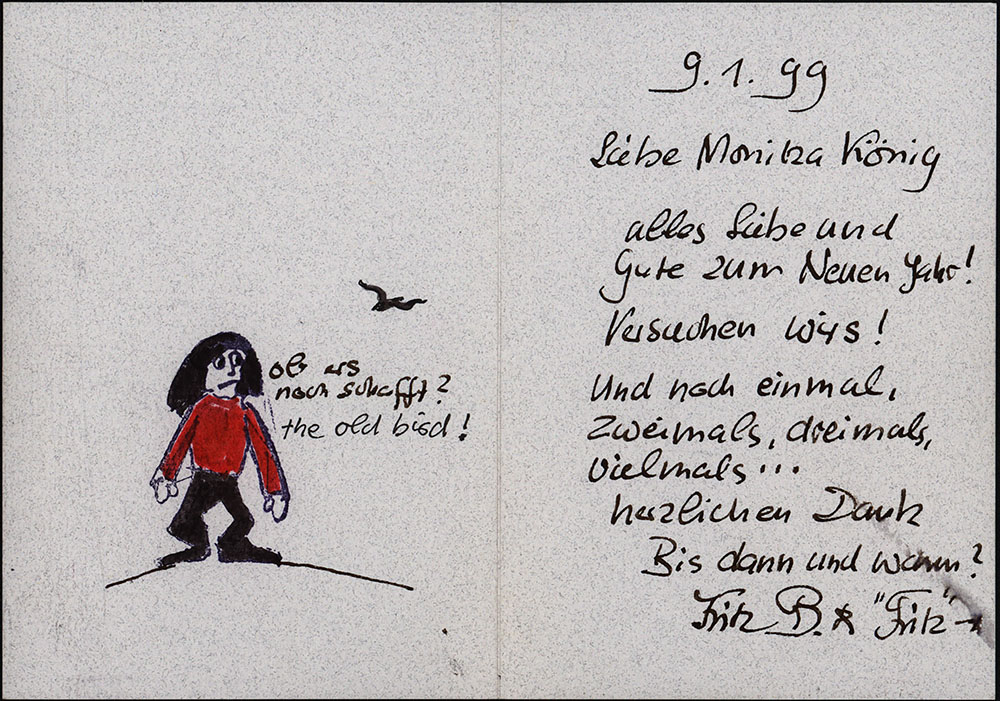 ob ers
noch schafft?
the old bird!
9.1.99
Liebe Monika König
alles Liebe und
Gute zum Neuen Jahr!
Versuchen wirs!
Und noch einmal,
zweimals, dreimals,
vielmals...
herzlichen Dank
Bis dann und wann?
Fritz B. & "Fritz"